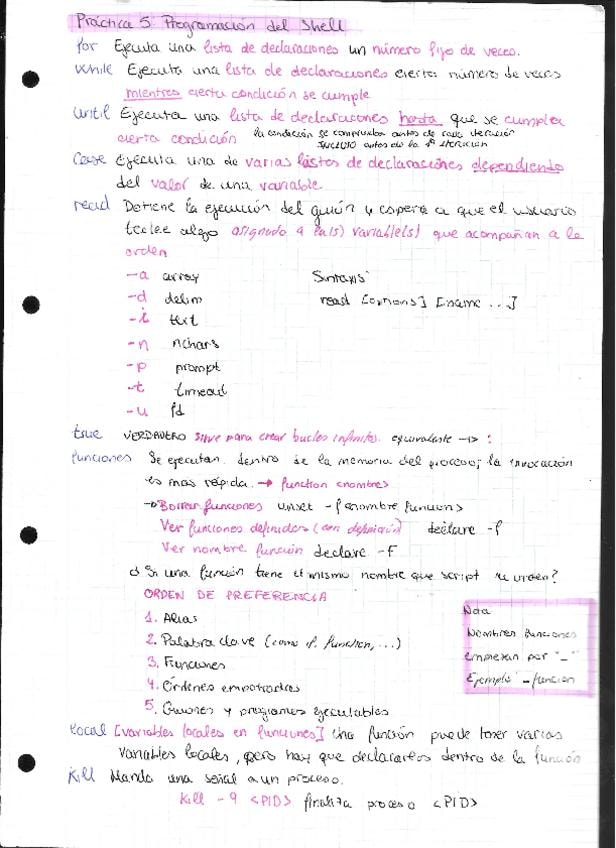 Práctica 5: Programación del Shell
for Ejecuta una lista de declaraciones un número fijo de veces.
while Ejecuta una lista de declaraciones cierto número de veces
mientras cierta condición se cumple
until Ejecuta una lista de declaraciones hasta que se cumpla
cierta condición la condición se comprueba antes de cada iteración
incluso antes de la 1ª iteración
Case Ejecuta una de varias listas de declaraciones dependiendo
del valor de una variable.
read Detiene la ejecución del guión y espera a que el usuario
teclee algo asignado a la(s) variable(s) que acompañan a la
orden
-a array
Sintaxis
-d delim
read [options] [name ...]
-i text
-n nchars
-p prompt
-t timeout
-u fd
true VERDADERO sirve para crear bucles infinitos. equivalente → :
funciones Se ejecutan dentro de la memoria del proceso; la invocación
es más rápida. → function <nombre>
→ Borrar funciones unset -f <nombre función>
Ver funciones definidas (con definición) declare -f
Ver nombre función declare -F
¿Si una función tiene el mismo nombre que script u orden?
ORDEN DE PREFERENCIA
1. Alias
2. Palabra clave (como if, function, ...)
3. Funciones
4. Órdenes empotradas
5. Guiones y programas ejecutables
Nota
Nombres funciones
empiezan por "_"
Ejemplo _funcion
local [variables locales en funciones] Una función puede tener varias
variables locales, pero hay que declararlas dentro de la función
Kill Manda una señal a un proceso.
Kill -9 <PID> finaliza proceso <PID>